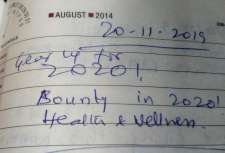 AUGUST 2014
20-11-2019
Gear up for
2020!
Bounty in 2020!
Health & Wellness.